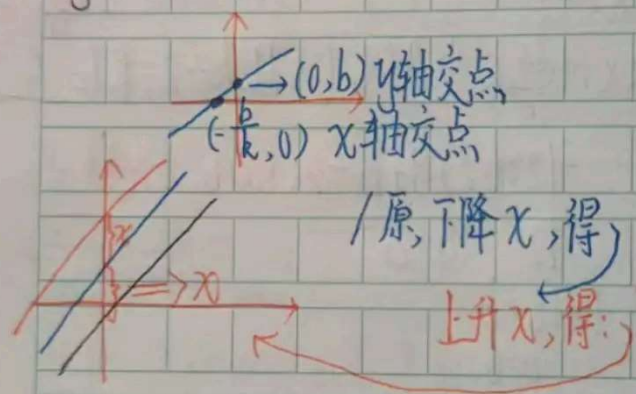 (0,b) y轴交点
(-b/k,0) x轴交点
/原,下降x,得
x
=>x
上升x,得: